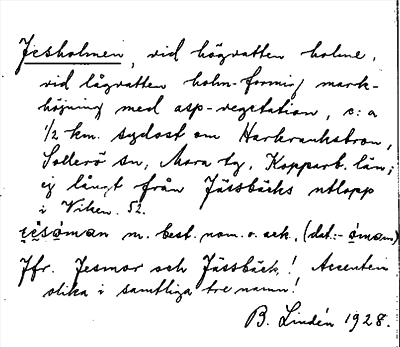 Jesholmen, vid högvatten holme,
vid lågvatten holm-formig mark-
höjning med asp-vegetation, c:a
1/2 km. sydost om
Sollerö sn, Mora tg, Kopparb. län;
ej långt från Jässbäcks utlopp
i Viken. 52.
m. best. nom. o. ack. (dat.-
Jfr. Jesmor och Jässbäck! Accenten
olika i samtliga tre namn!
B. Lindén 1928.